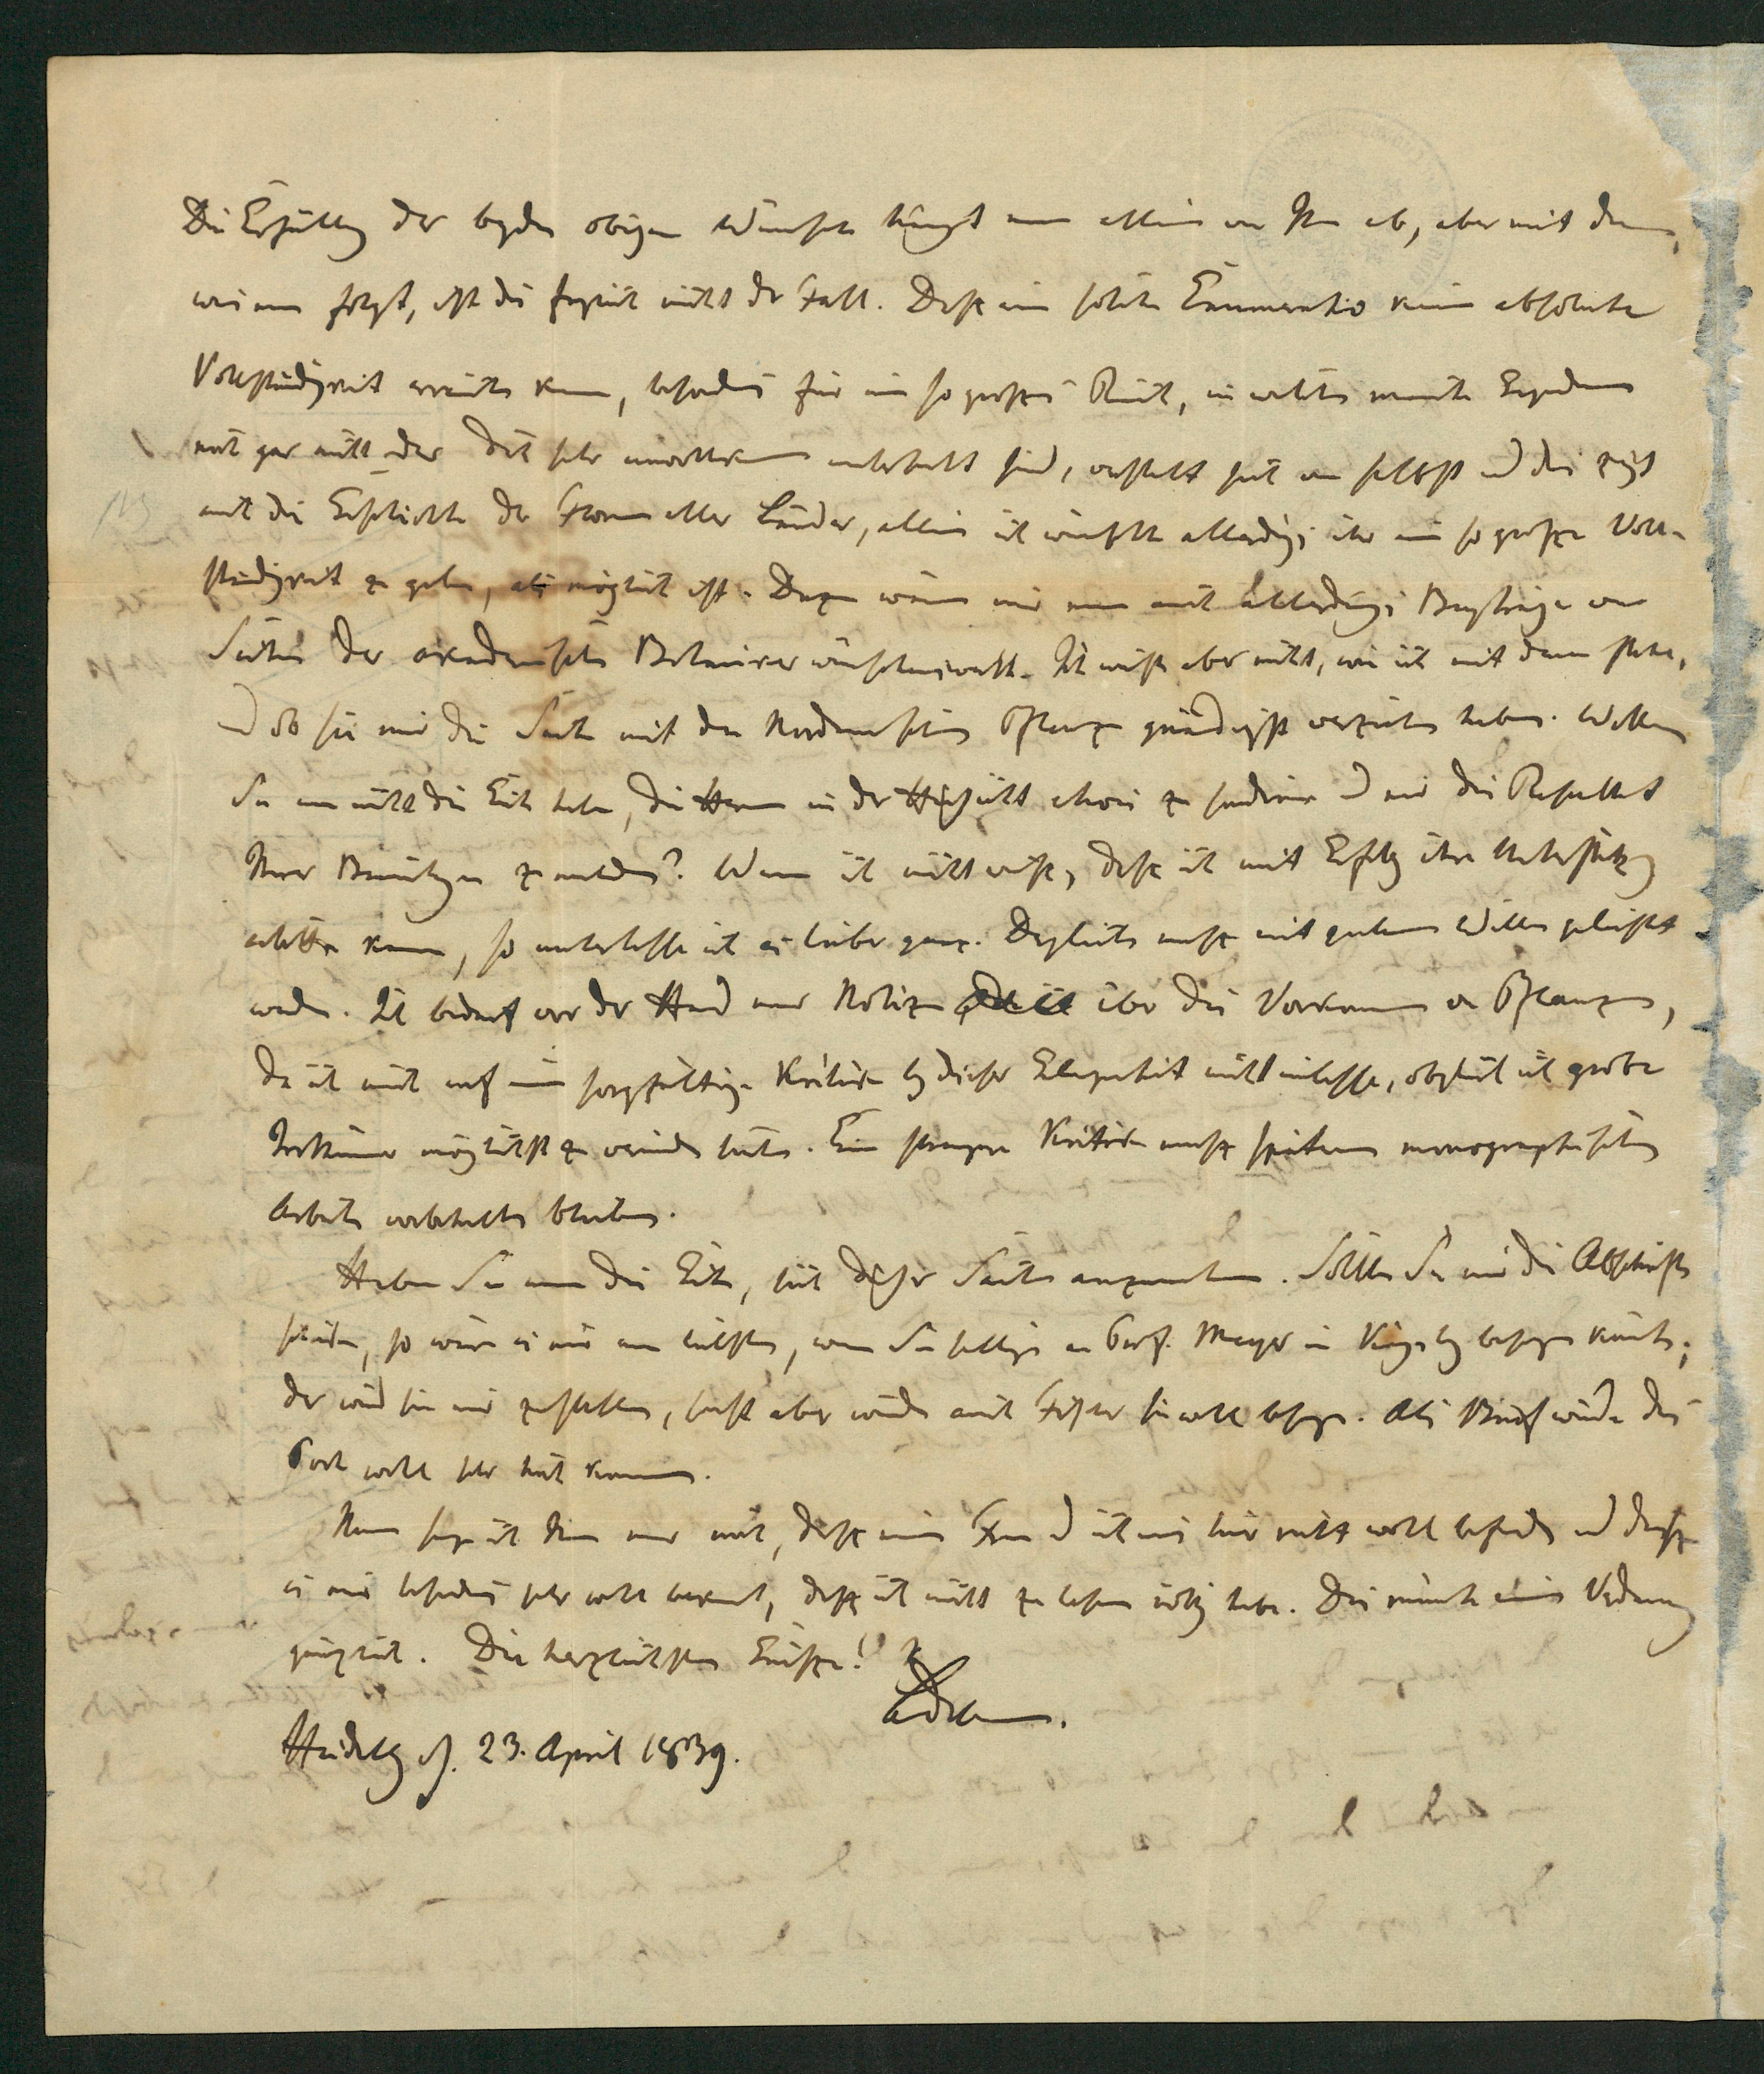 Die Erfüllung der beyden obigen Wünsche hängt nun allein von Ihnen ab, aber mit dem,
was nun folgt, ist dies freylich nicht der Fall. Daß eine solche Enumeratio keine absolute
Vollständigkeit erreichen kann, besonders für ein so großes Reich, in welchem manche Gegenden
noch gar nicht oder doch sehr unvollkommen untersucht sind, versteht sich von selbst und dies zeigt
auch die Geschichte der Floren aller Länder, allein ich wünschte allerdings ihr eine so große Voll-
ständigkeit zu geben, als möglich ist. Dazu wären mir nun auch allerdings Beyträge von
Seiten der akademischen Botaniker wünschenswerth. Ich weiß aber nicht, wie ich mit denen stehe,
und ob sie mir die Sache mit den Nordmannschen Pflanzen gnädigst verziehen haben. Wollten
Sie nun nicht die Güte haben, die Herrn in der Hinsicht etwas zu sondiren und mir die Resultate
Ihrer Bemühungen zu melden? Wenn ich nicht weiß, daß ich mit Erfolg ihre Unterstützung
erbitten kann, so unterlasse ich es lieber ganz. Dergleichen muß mit gutem Willen geleistet
werden. Ich bedarf vor der Hand nur Notizen über das Vorkommen von Pflanzen,
da ich mich auf eine sorgfältige Kritik bey dieser Gelegenheit nicht einlasse, obgleich ich grobe
Irrthümer möglichst zu vermeiden suche. Eine strengere Kritik muß späteren monographischen
Arbeiten vorbehalten bleiben.
Haben Sie nun die Güte, sich dieser Sache anzunehmen. Sollten Sie mir die Abschrift
schicken, so wäre es mir am liebsten, wenn Sie selbige an Prof. Meyer in Königsberg besorgen könnten;
der wird sie mir zustellen, sonst aber würde auch Fischer sie wohl besorgen. Als Brief würde das
Porto wohl sehr hoch kommen.
Nun sage ich Ihnen nur noch, daß meine Frau und ich uns hier recht wohl befinden und daß
es mir besonders sehr wohl bekommt, daß ich nicht zu lesen nöthig habe. Dies machte meine Verdauung
gänzlich. Die herzlichsten Grüße!
Ledebour.
Heidelberg d. 23. April 1839.